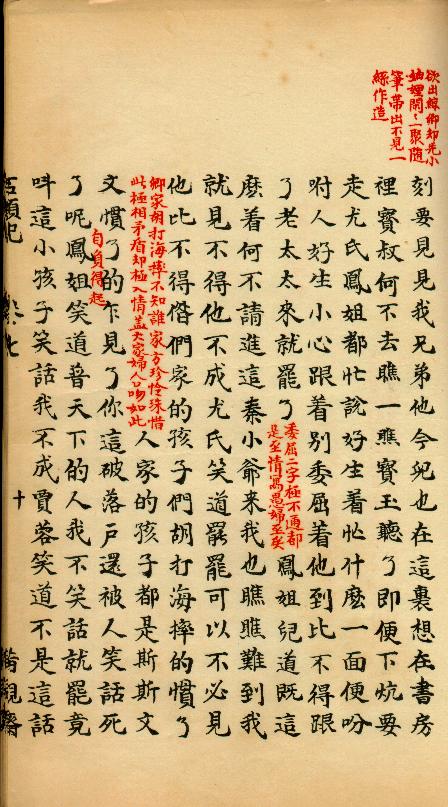 欲出鯨卿却先小
妯娌閒閒一聚隨
筆帶出不見一
絲作造
刻要見見我兄弟他今兒也在這裏想在書房
裡寳叔何不去瞧一瞧寳玉聽了即便下炕要
走尤氏鳳姐都忙說好生着忙什麼一面便吩
咐人好生小心跟着別委屈着他到比不得跟
了老太太來就罷了
委屈二字極不通都
是至情寫愚婦至矣
鳳姐兒道既這
麽着何不請進這秦小爺来我也瞧瞧難到我
就見不得他不成尤氏笑道罷罷可以不必見
他比不得偺們家的孩子們胡打海摔的慣了
卿家胡打海摔不知誰家方珍怜珠惜
此極相矛盾却極入情盖大家婦人口吻如此
人家的孩子都是斯斯文
文慣了的乍見了你這破落戶還被人笑話死
了呢鳳姐笑道普天下的人我不笑話就罷竟
自負得起
呌這小孩子笑話我不成賈蓉笑道不是這話
十